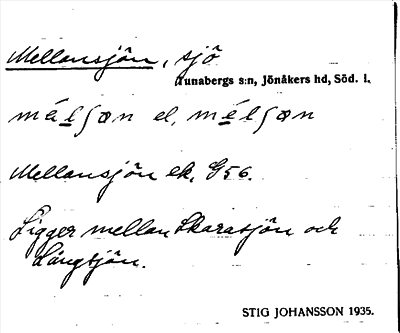 Mellansjön, sjö
Tunabergs s:n, Jönåkers hd, Söd. l.
mélʃøn el. mélʃøn
Mellansjön ek. G56.
Ligger mellan Skarasjön och
Långsjön.
STIG JOHANSSON 1935.